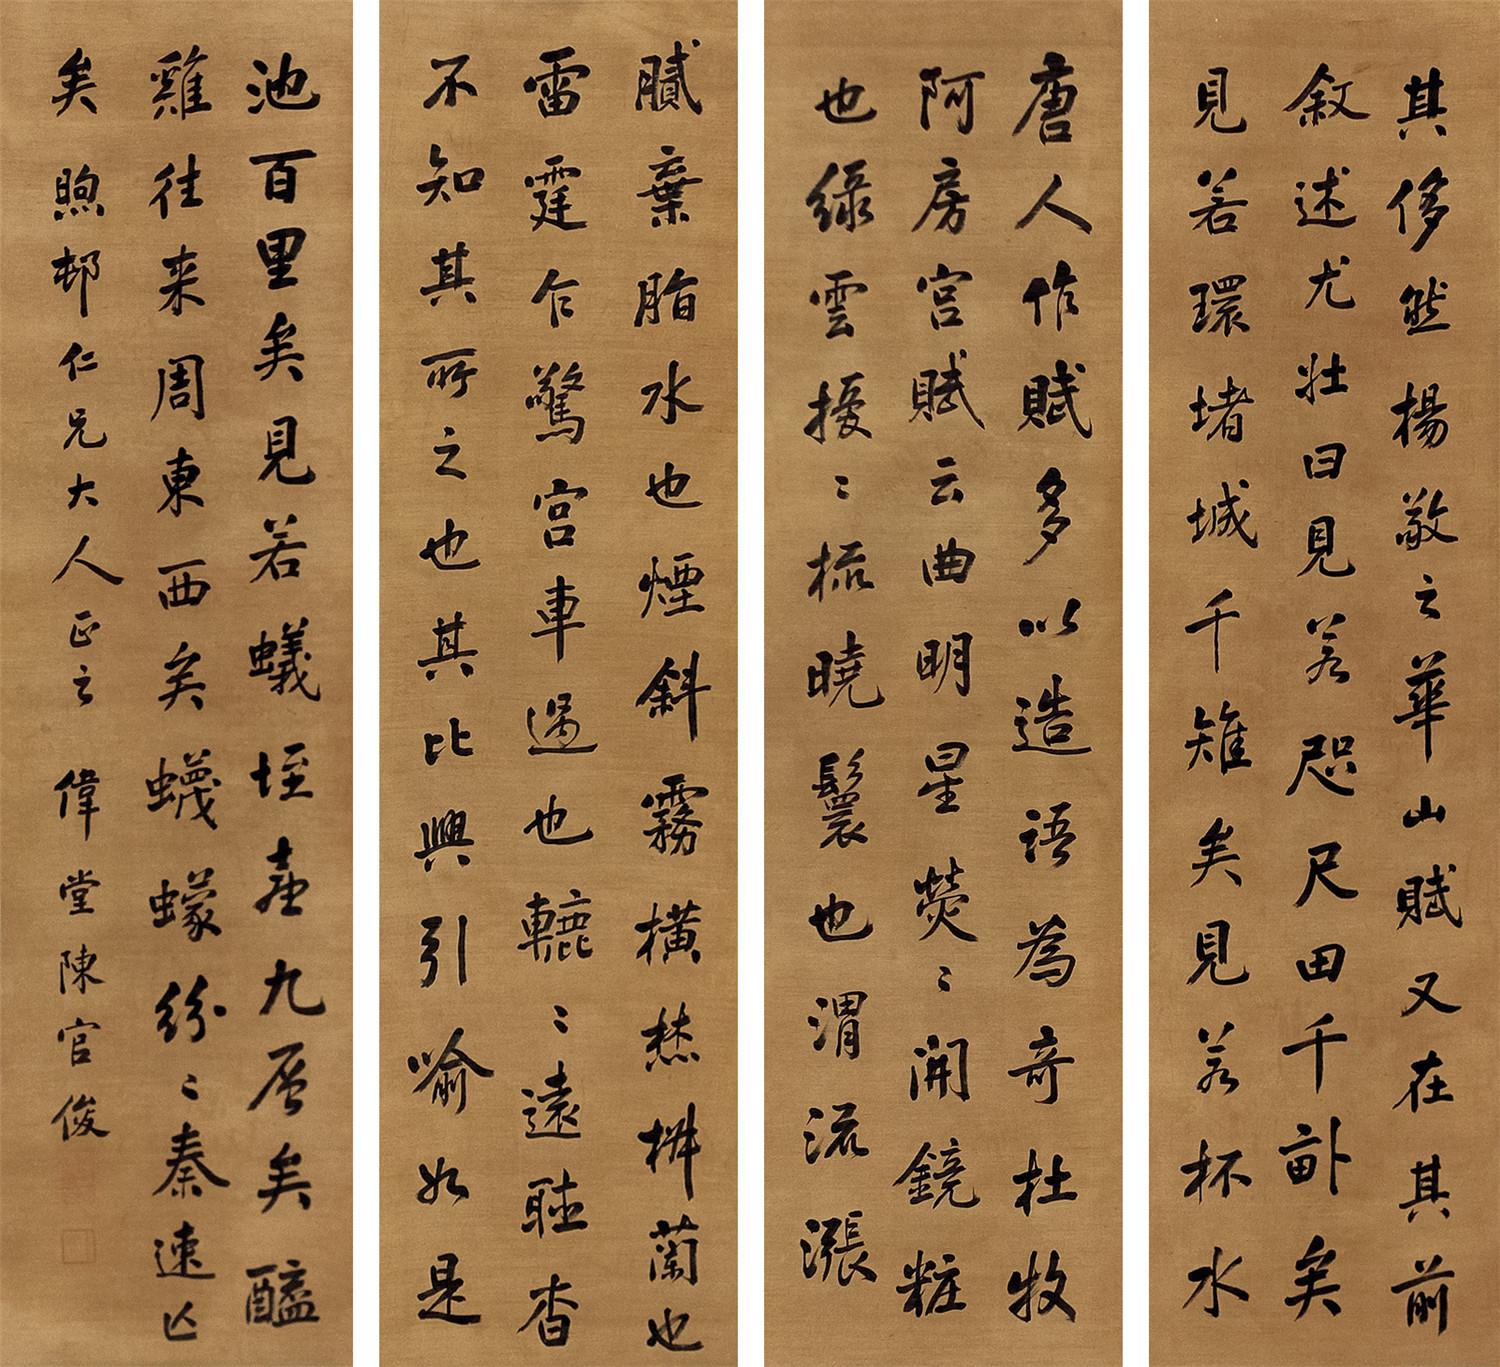 唐人作賦多以造語為奇杜牧
阿房宮賦云曲明星熒〻開鏡粧
也綠雲擾〻梳曉鬟也渭流漲
膩棄脂水也煙斜霧橫焚椒蘭也
雷霆乍驚宮車過也轆〻遠聽杳
不知其所之也其比興引喻如是
其侈然楊敬之華山賦又在其前
敘述尤壯曰見若咫尺田千畝矣
見若環堵城千雉矣見若杯水
池百里矣見若蟻垤臺九層矣醯
雞往来周東西矣蠛蠓紛〻秦速亡
矣 煦邨仁兄大人正之 偉堂陳官俊